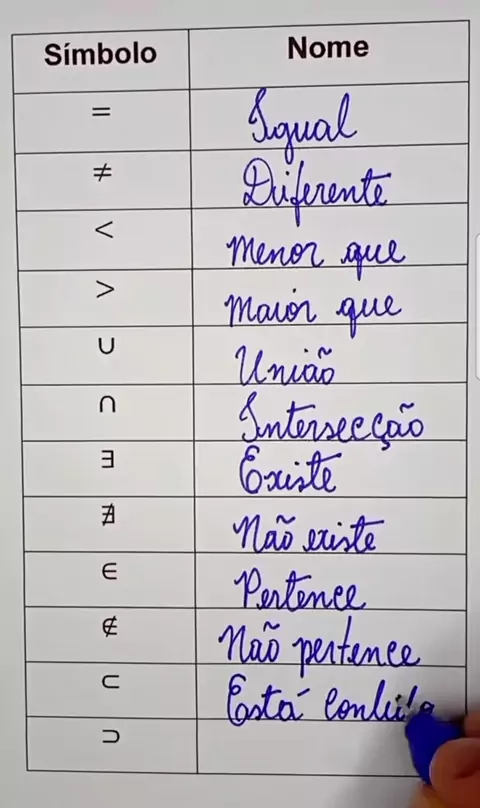 Símbolo Nome
= Igual
≠ Diferente
< Menor que
> Maior que
∪ União
∩ Intersecção
∃ Existe
∄ Não existe
∈ Pertence
∉ Não pertence
⊂ Está
⊃